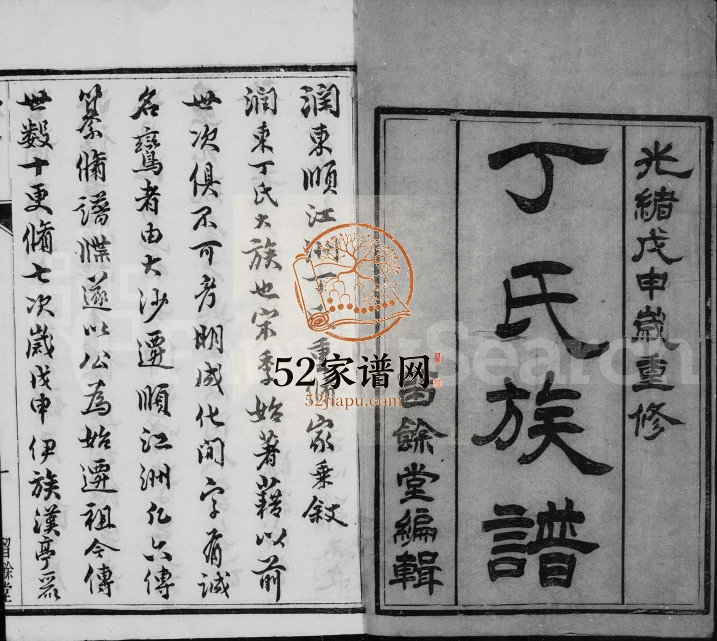 光緒戊申歲重修
丁氏族譜
留餘堂編輯
潤東順江洲丁重家乘敘
潤東丁氏大族也宋季始著籍以前
世次俱不可考明成化間字有誠
名鸞者由大沙遷順江洲凡六傳
纂脩譜牒遂以公為始遷祖今傳
世數十更脩七次歲戊申伊族漢亭
留餘堂
52家谱网
52jiapu.com
Search